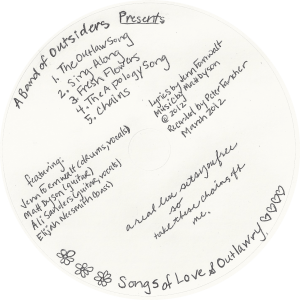 A Band of Outsiders Presents
1. The Outlaw Song
2. Sing Along
3. Fresh Flowers
4. The Apology Song
5. Chains
Lyrics by Jenn Fornwalt
Music by Matt Dyson
© 2012
Recorded by Peter Farscher
March 2012
featuring:
Jenn Fornwalt (drums, vocals)
Matt Dyson (guitar)
Ali Saunders (guitar, vocals)
Elijah Nexsmith (bass)
a real love sets you free
so
take these chains off
me.
Songs of Love & Outlawry.